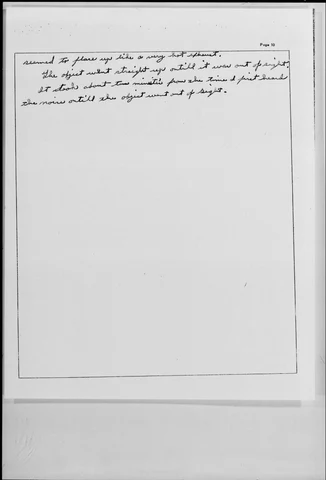 Page 10
seemed to flare up like a very hot exhaust.
The object went straight up ontill it was out of sight.
It took about two minutes from the time I first heard
the noise ontill the object went out of sight.